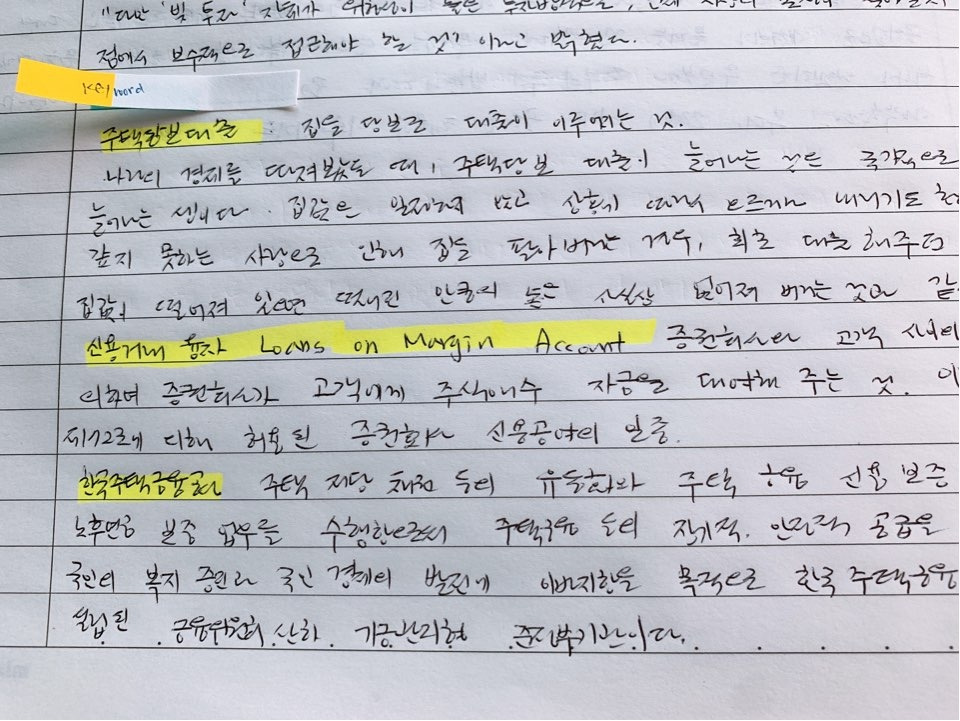 점에서 보수적으로 접근해야 할 것" 이라고 밝혔다.
Keyword
주택담보대출 : 집을 담보로 대출이 이루어지는 것.
나라의 경제를 따져봤을 때, 주택담보 대출이 늘어나는 것은 국가적으로
늘어나는 셈이다. 집값은 일정하지 않고 오르거나 내리기도
갚지 못하는 사람으로 인해 집을 팔아버리는 경우, 최초 대출해주던
집값이 떨어져 있으면 떨어진 만큼의 돈은 사실상 없어져 버리는 것과 같
신용거래 융자 Loans on Margin Account 증권회사와 고객 사이의
의하여 증권회사가 고객에게 주식매수 자금을 대여해 주는 것. 이
제72조에 의해 허용된 증권회사 신용공여의 일종.
한국주택금융공사 주택 저당 채권 등의 유동화와 주택 금융 신용 보증
노후연금 보증 업무를 수행함으로써 주택금융 등의 장기적. 안정적 공급을
국민의 복지 증진과 국민 경제의 발전에 이바지함을 목적으로 한국 주택금융
설립된 금융위원회 산하 기금관리형 준정부기관이다.